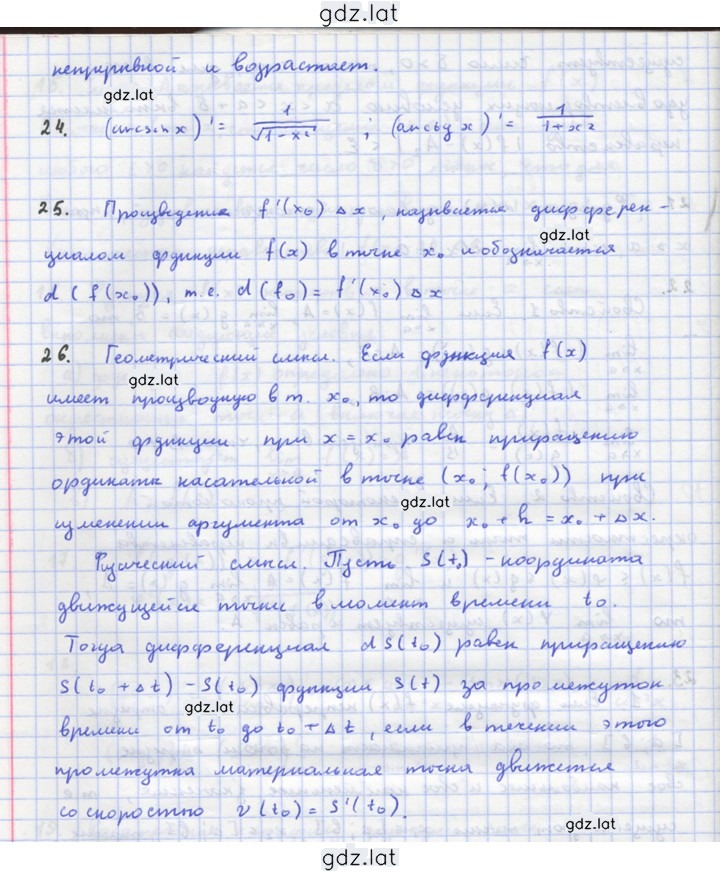 gdz.lat
непрерывной и возрастает.
gdz.lat
24. (arcsin x)' = 1/√(1-x²) ; (arctg x)' = 1/(1+x²)
25. Произведение f'(x₀) Δx, называется дифферен-
gdz.lat
циалом функции f(x) в точке x₀ и обозначается
d(f(x₀)), т.е. d(f₀) = f'(x₀) Δx
26. Геометрический смысл. Если функция f(x)
gdz.lat
имеет производную в т. x₀, то дифференциал
этой функции при x = x₀ равен приращению
ординаты касательной в точке (x₀; f(x₀)) при
gdz.lat
изменении аргумента от x₀ до x₀ + h = x₀ + Δx.
Физический смысл. Пусть S(t₀) - координата
движущейся точки в момент времени t₀.
Тогда дифференциал dS(t₀) равен приращению
S(t₀ + Δt) - S(t₀) функции S(t) за промежуток
gdz.lat
времени от t₀ до t₀ + Δt, если в течении этого
промежутка материальная точка движется
со скоростью v(t₀) = S'(t₀).
gdz.lat
gdz.lat